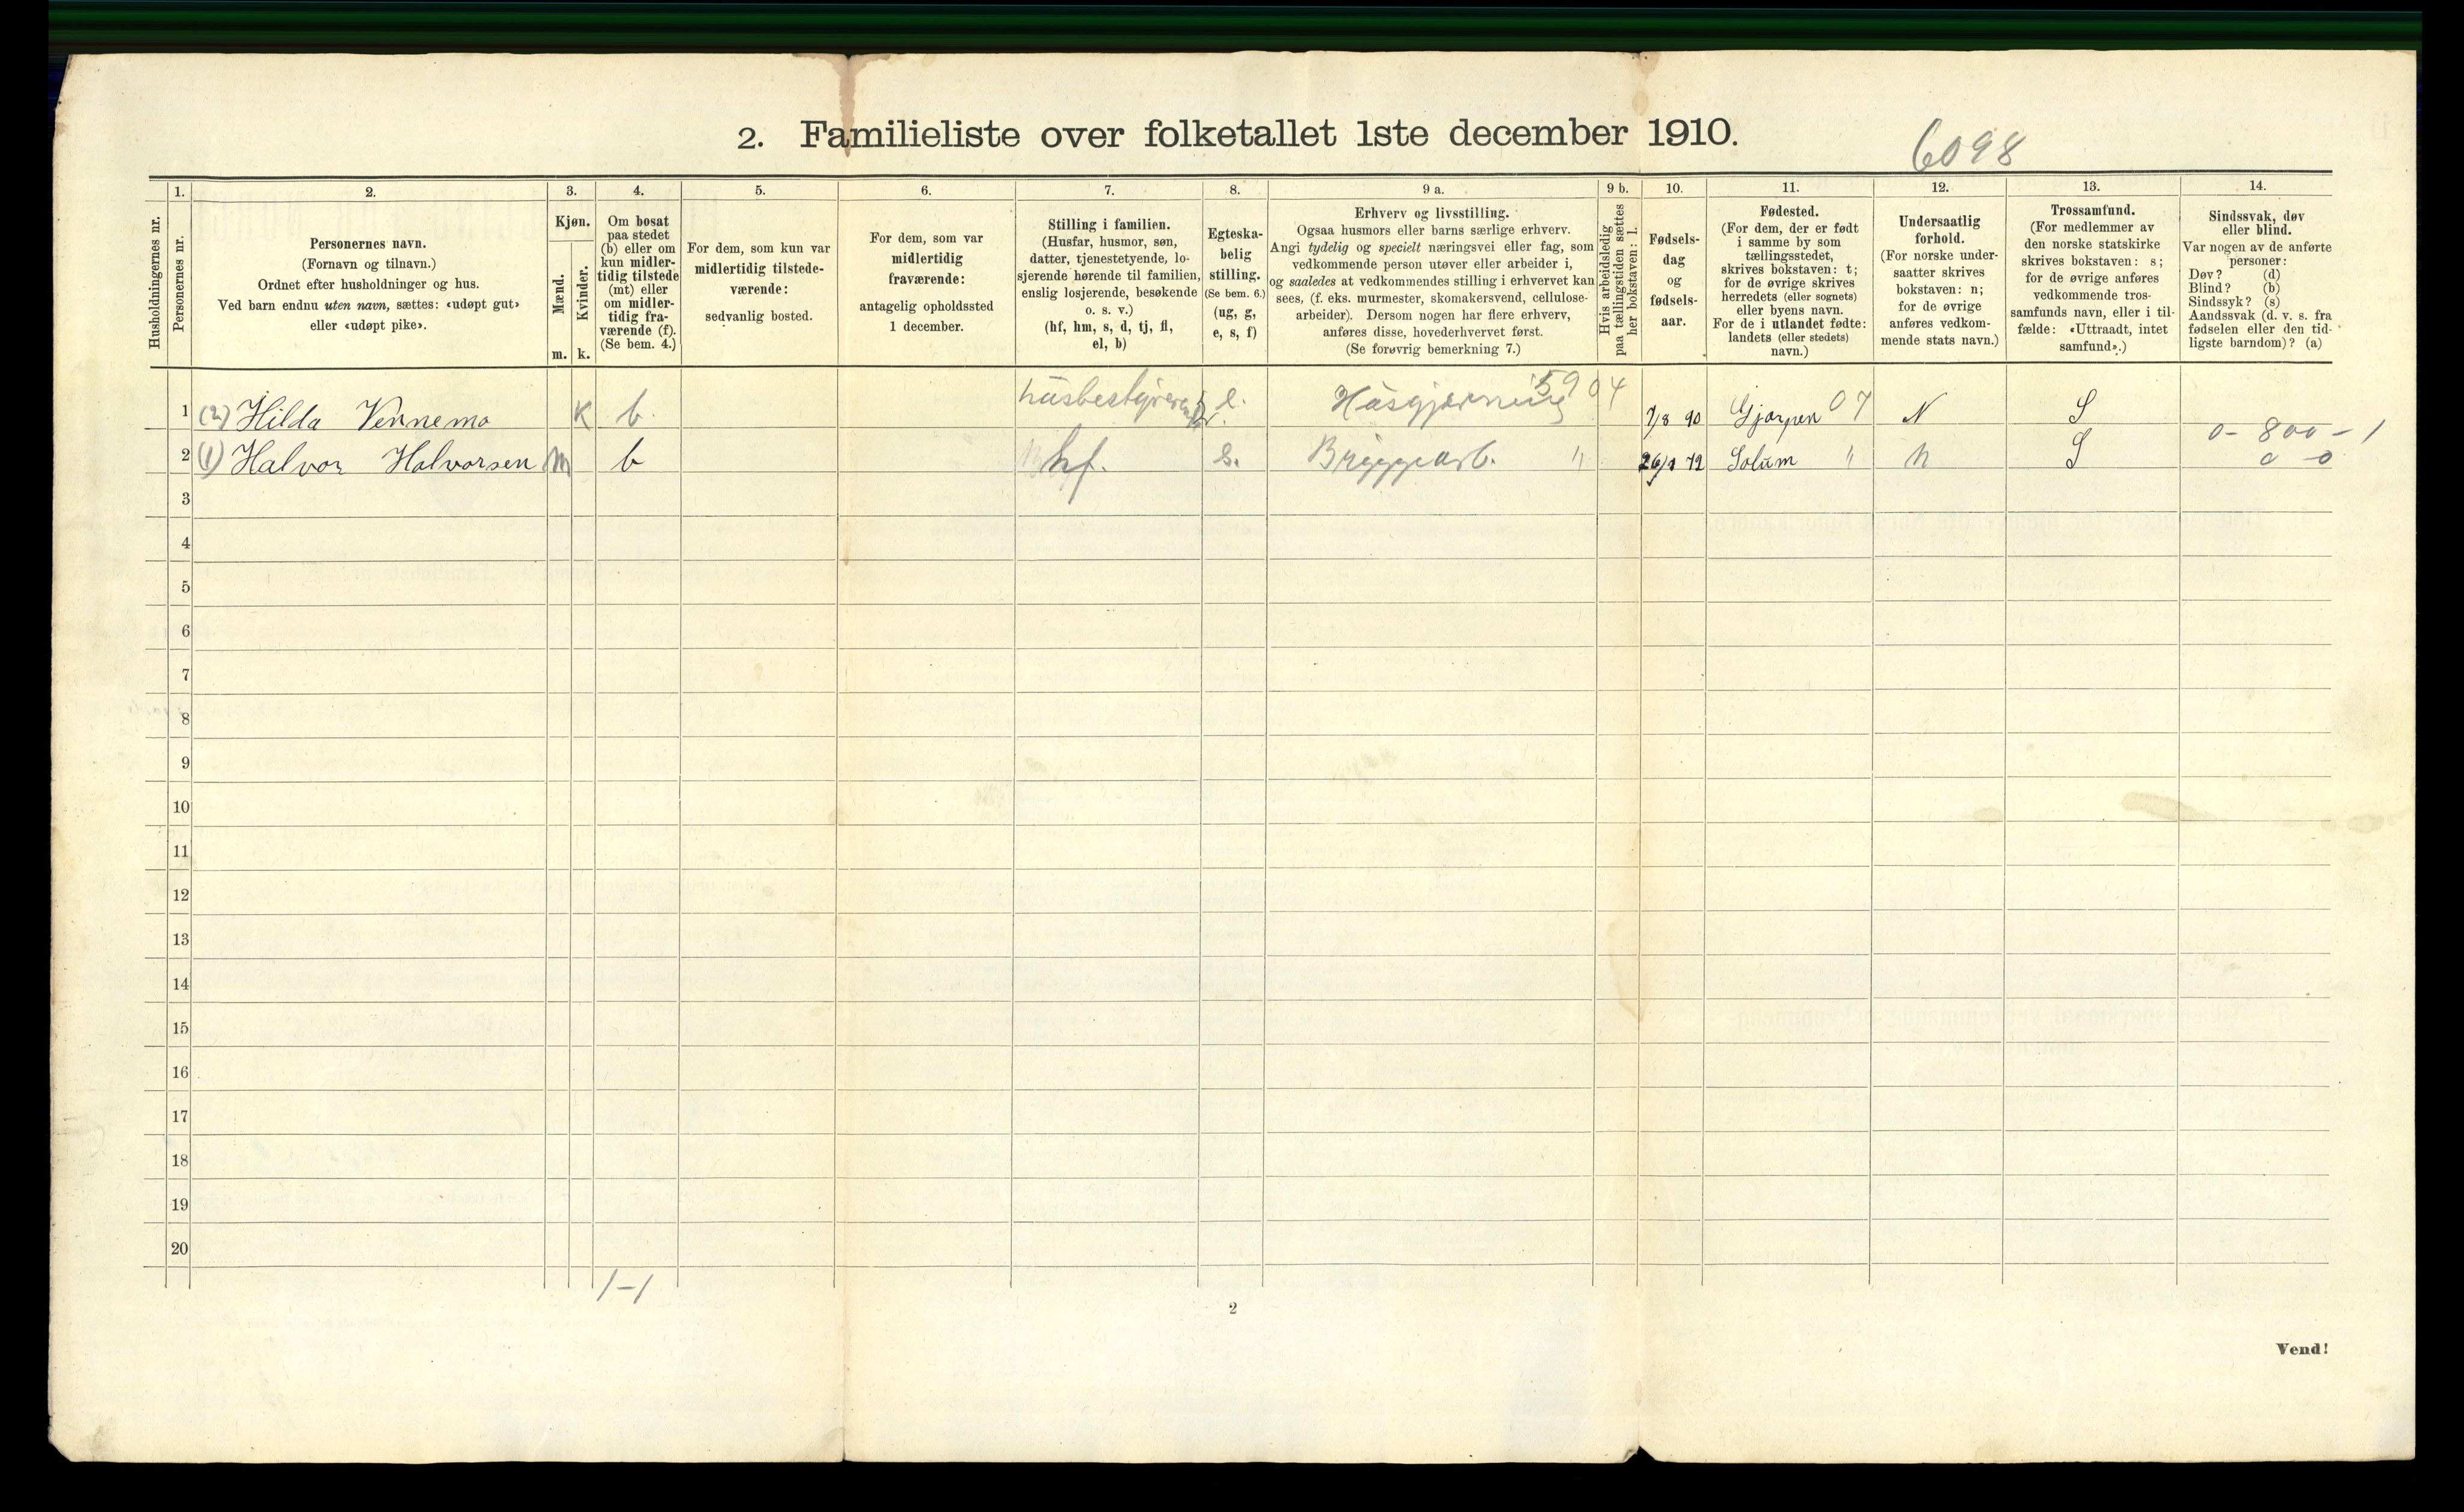 2. Familieliste over folketallet 1ste december 1910.
6098
Husholdningernes nr.
1.
Personernes nr.
2.
Personernes navn.
(Fornavn og tilnavn.)
Ordnet efter husholdninger og hus.
Ved barn endnu uten navn, sættes: «udøpt gut»
eller «udøpt pike».
3.
Kjøn.
Mænd.
Kvinder.
m. k.
4.
Om bosat
paa stedet
(b) eller om
kun midler-
tidig tilstede
(mt) eller
om midler-
tidig fra-
værende (f).
(Se bem. 4.)
5.
For dem, som kun var
midlertidig tilstede-
værende:
sedvanlig bosted.
6.
For dem, som var
midlertidig
fraværende:
antagelig opholdssted
1 december.
7.
Stilling i familien.
(Husfar, husmor, søn,
datter, tjenestetyende, lo-
sjerende hørende til familien,
enslig losjerende, besøkende
o. s. v.)
(hf, hm, s, d, tj, fl,
el, b)
8.
Egteska-
belig
stilling.
(Se bem. 6.)
(ug, g,
e, s, f)
9 a.
Erhverv og livsstilling.
Ogsaa husmors eller barns særlige erhverv.
Angi tydelig og specielt næringsvei eller fag, som
vedkommende person utøver eller arbeider i,
og saaledes at vedkommendes stilling i erhvervet kan
sees, (f. eks. murmester, skomakersvend, cellulose-
arbeider). Dersom nogen har flere erhverv,
anføres disse, hovederhvervet først.
(Se forøvrig bemerkning 7.)
9 b.
Hvis arbeidsledig
paa tællingstiden sættes
her bokstaven: l.
10.
Fødsels-
dag
og
fødsels-
aar.
11.
Fødested.
(For dem, der er født
i samme by som
tællingsstedet,
skrives bokstaven: t;
for de øvrige skrives
herredets (eller sognets)
eller byens navn.
For de i utlandet fødte:
landets (eller stedets)
navn.)
12.
Undersaatlig
forhold.
(For norske under-
saatter skrives
bokstaven: n;
for de øvrige
anføres vedkom-
mende stats navn.)
13.
Trossamfund.
(For medlemmer av
den norske statskirke
skrives bokstaven: s;
for de øvrige anføres
vedkommende tros-
samfunds navn, eller i til-
fælde: «Uttraadt, intet
samfund».)
14.
Sindssvak, døv
eller blind.
Var nogen av de anførte
personer:
Døv? (d)
Blind? (b)
Sindssyk? (s)
Aandssvak (d. v. s. fra
fødselen eller den tid-
ligste barndom)? (a)
1 (2) Hilda Vennemo K b. e. Husgjerning 5904 7/8 90 Gjerpen 07 N S
0 - 800 - 1
2 (1) Halvor Halvorsen m b hf. Bryggearb. " 72 Solum " n S 0 0
3
4
5
6
7
8
9
10
11
12
13
14
15
16
17
18
19
20
1-1
2
Vend!